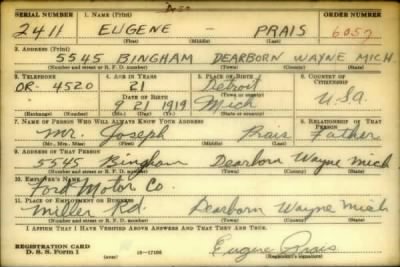 SERIAL NUMBER 1. NAME (Print) ORDER NUMBER
2411 EUGENE - PRAIS 6057
(First) (Middle) (Last)
2. ADDRESS (Print)
5545 BINGHAM DEARBORN WAYNE MICH
(Number and street or R. F. D. number) (Town) (County) (State)
3. TELEPHONE 4. AGE IN YEARS 5. PLACE OF BIRTH 6. COUNTRY OF CITIZENSHIP
OR. 4520 21 Detroit
DATE OF BIRTH (Town or county)
9 21 1919 Mich U.S.A.
(Exchange) (Number) (Mo.) (Day) (Yr.) (State or country)
7. NAME OF PERSON WHO WILL ALWAYS KNOW YOUR ADDRESS 8. RELATIONSHIP OF THAT PERSON
Mr. Joseph Prais Father
(Mr., Mrs., Miss) (First) (Middle) (Last)
9. ADDRESS OF THAT PERSON
5545 Bingham Dearborn Wayne Mich
(Number and street or R. F. D. number) (Town) (County) (State)
10. EMPLOYER'S NAME
Ford Motor Co.
11. PLACE OF EMPLOYMENT OR BUSINESS
Miller Rd. Dearborn Wayne Mich
(Number and street or R. F. D. number) (Town) (County) (State)
I AFFIRM THAT I HAVE VERIFIED ABOVE ANSWERS AND THAT THEY ARE TRUE.
REGISTRATION CARD
D. S. S. Form 1 16-17105 Eugene Prais
(Registrant's signature)